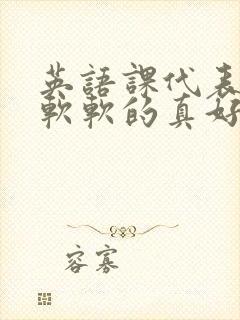 英語課代表
軟軟的真好
容寡